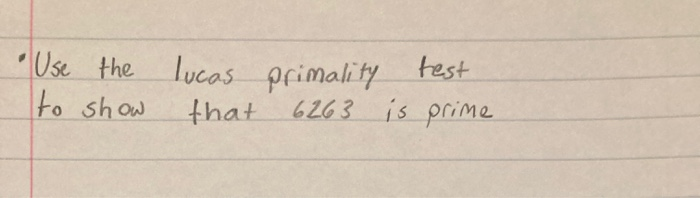 • Use the lucas primality test
to show that 6263 is prime